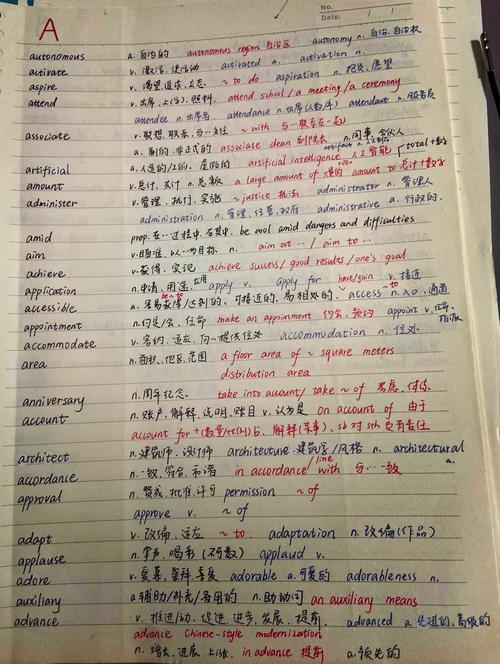 No.
Date.
A
autonomous a. 自治的 autonomous region 自治区 autonomy n. 自治, 自治权
activate v. 激活, 使活动 activated a. activation n.
aspire v. 渴望, 追求, 立志 ~ to do aspiration n. 抱负, 愿望
attend v. 出席, 上(学), 照料, attend school / a meeting / a ceremony
attendee n. 出席者, attendance n. 出席(人数/率) attendant n. 服务员
associate v. 联想, 联系, ~ with 与…联系在一起
a. 副的, 非正式的 associate dean 副院长 n. 同事, 合伙人
artificial a. 人造的/工的, artificial intelligence 人工智能
amount v. 总计, 共计 n. 总数 a large amount of 大量的 amount to 总计+数字
administer v. 管理, 执行, 实施 ~ justice 执法 administrator n. 管理人
administration n. 管理, 经营, 政府 administrative a. 行政的.
amid prep. 在…过程中, 在其中, be cool amid dangers and difficulties
aim v. 瞄准, 以…为目标 n. aim at … / aim to …
achieve v. 获得, 实现 achieve success / good results / one's goal
application n. 申请, 用途, 应用 apply v. apply for
accessible a. 容易获得/达到的, 可接近的, 易相处的, have/gain access to n. 入口, 通道 v. 接近
appointment n. 约见/会, 任命 make an appointment 约会, 预约 appoint v. 任命,
accommodate v. 容纳, 适应, 向…提供住处 accommodation n. 住处
area n. 面积, 地区, 范围 a floor area of ~ square meters
distribution area
anniversary n. 周年纪念. take into account / take ~ of 考虑,
account n. 账户, 解释, 说明, 账目 v. 认为是 on account of 由于
account for + (数量/比例) 占, 解释(某事), sb 对 sth 负有责任
architect n. 建筑师, 设计师 architecture 建筑学/风格 n. architectural a.
accordance n. 一致, 符合, 和谐 in accordance/line with 与…一致
approval n. 赞成, 批准, 许可 permission ~ of
approve v. ~ of
adapt v. 改编, 适应 ~ to. adaptation n. 改编(作品)
applause n. 掌声, 喝彩 (不可数) applaud v.
adore v. 爱慕, 崇拜, 喜爱 adorable a. 可爱的 adorableness n.
auxiliary a. 辅助/补充/备用的 n. 助动词 an auxiliary means
advance v. 推进/动, 促进, 进步, 发展, 提前 advanced a. 先进的, 高级的
advance Chinese-style modernization
n. 增长, 进展, 上涨, in advance 提前 a. 预先的